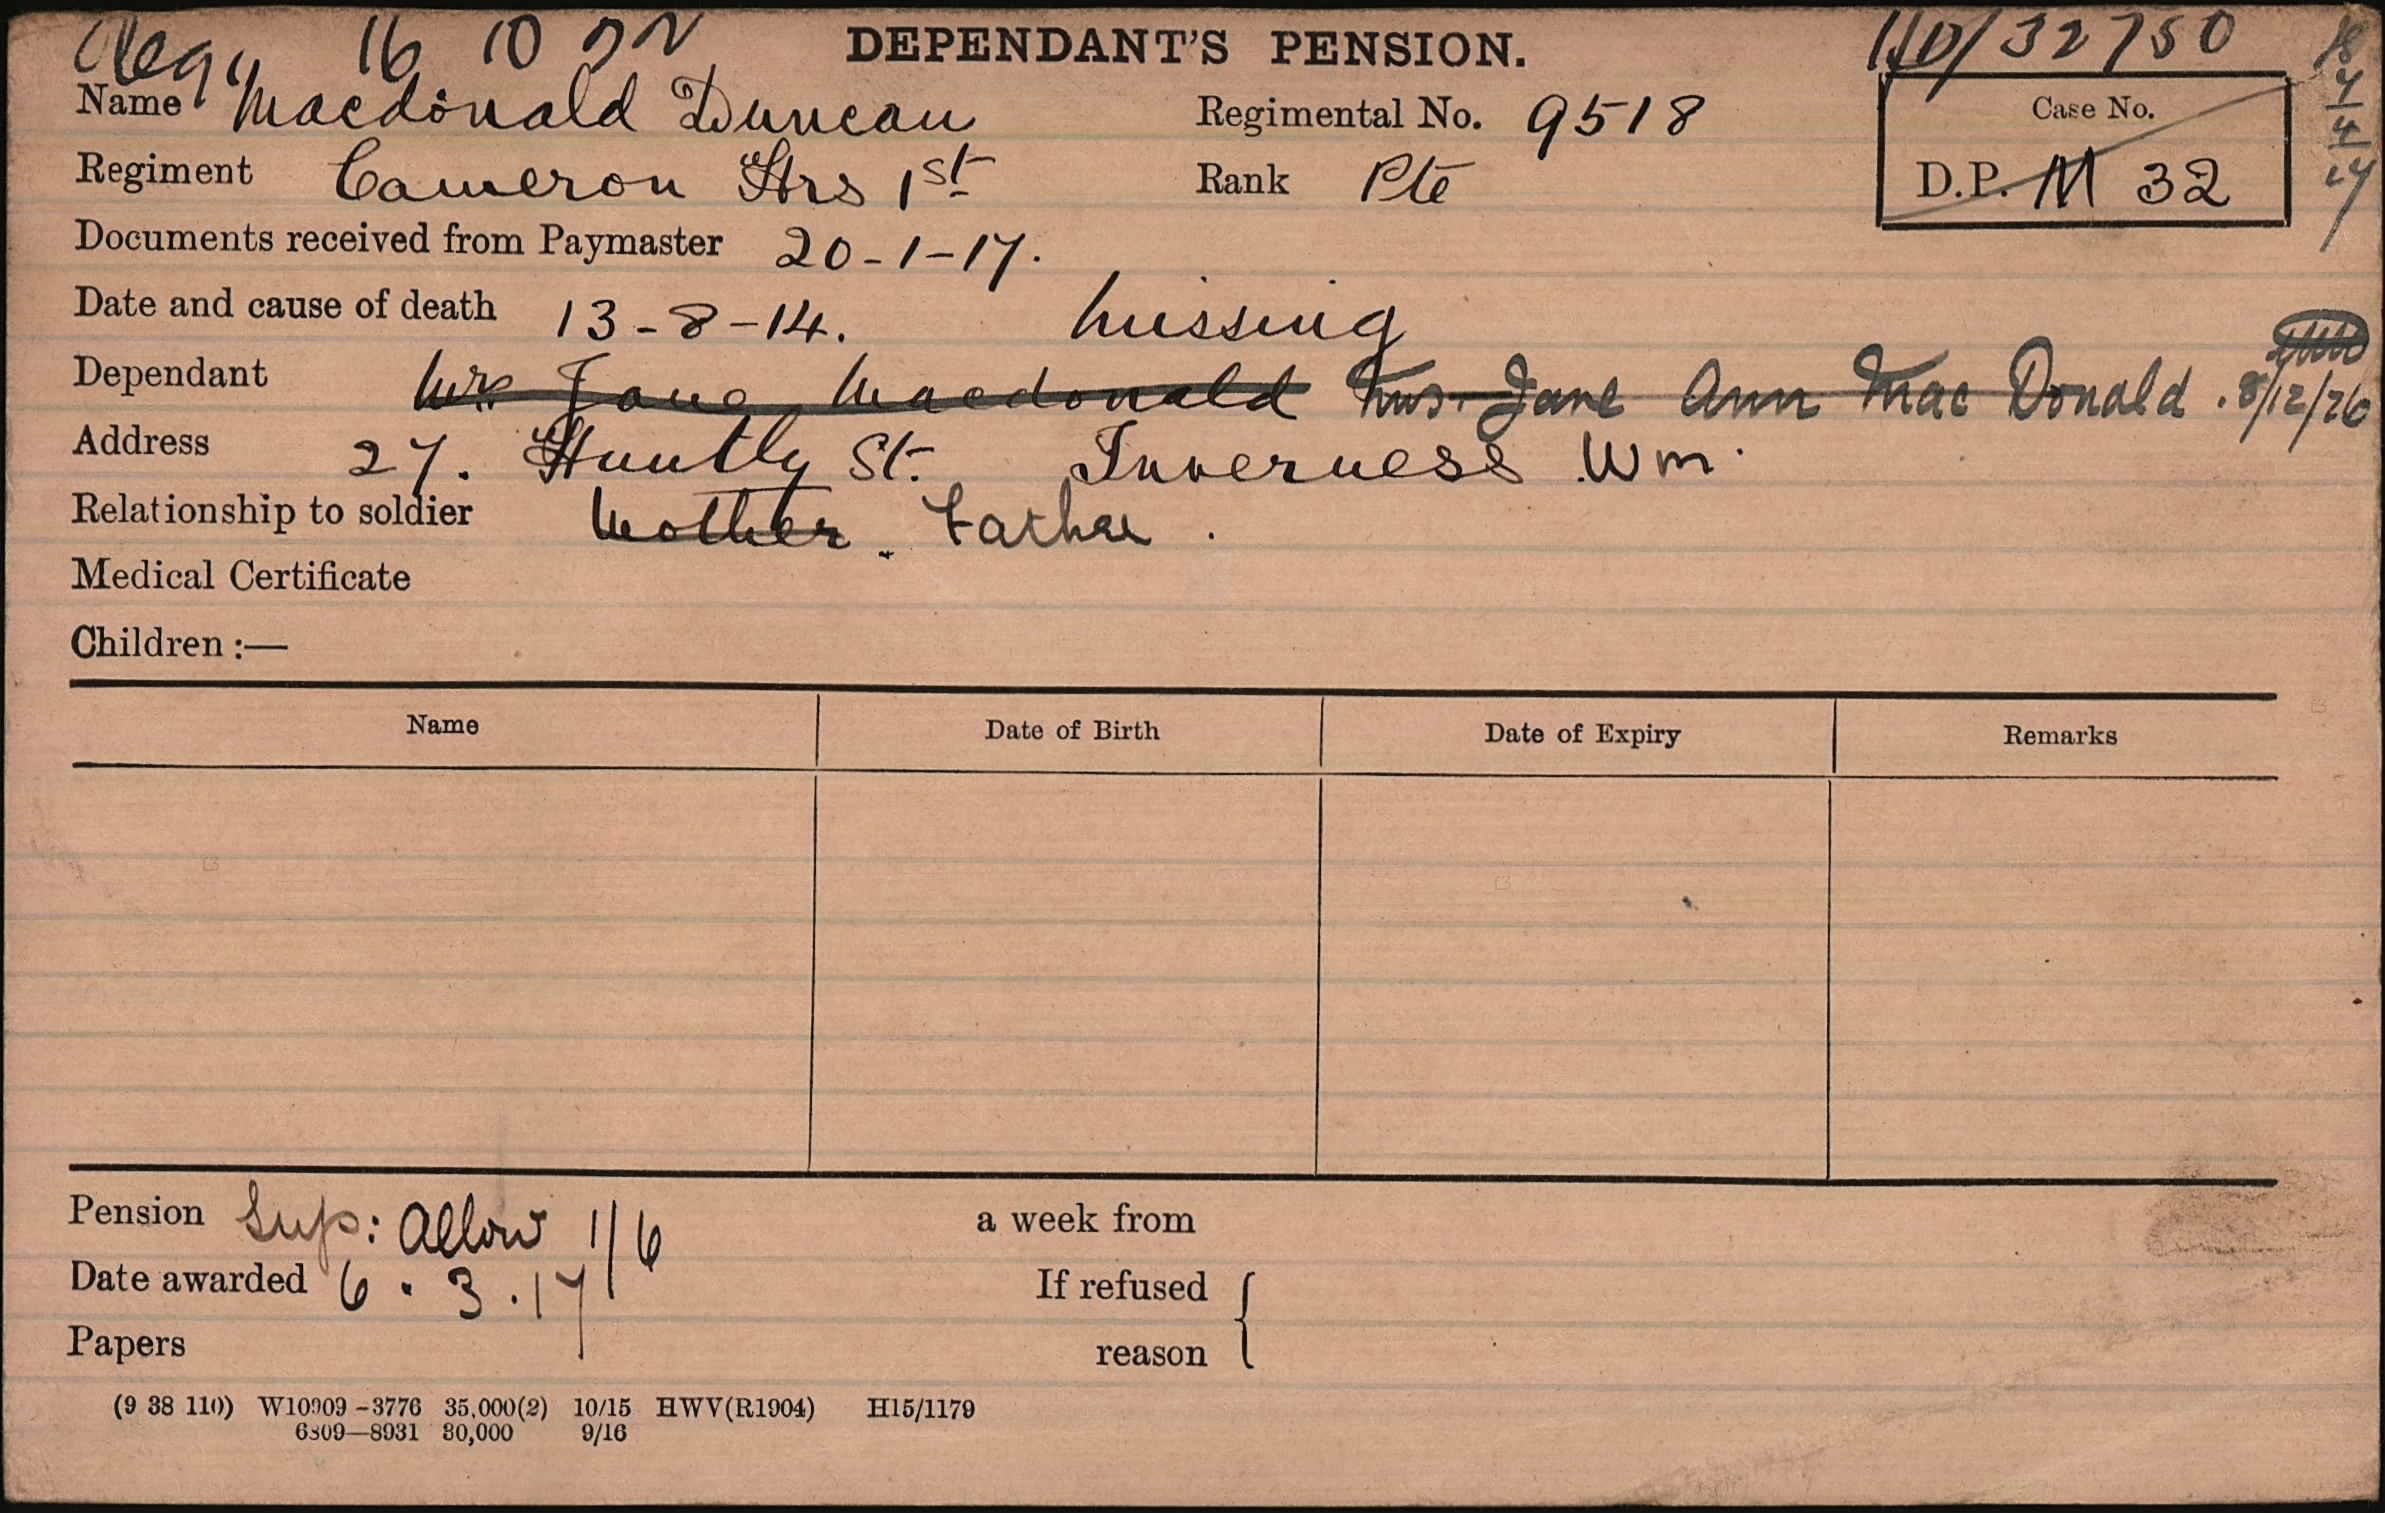 16 10 DEPENDANT'S PENSION. 11/D/32750
Name Macdonald Duncan Regimental No. 9518 Case No.
Regiment Cameron Hrs 1st Rank Pte D.P. M 32
Documents received from Paymaster 20-1-17.
Date and cause of death 13-8-14. Missing
Dependant Mrs Jane Macdonald Mrs. Jane Ann MacDonald. 8/12/26
Address 27. Huntly St. Inverness Wm.
Relationship to soldier Mother. Father.
Medical Certificate
Children :—
Name Date of Birth Date of Expiry Remarks
Pension Sup: Allow 1/6 a week from
Date awarded 6.3.17 If refused
Papers reason
(9 38 110) W10909-3776 35,000(2) 10/15 HWV(R1904) H15/1179
6809—8931 30,000 9/16